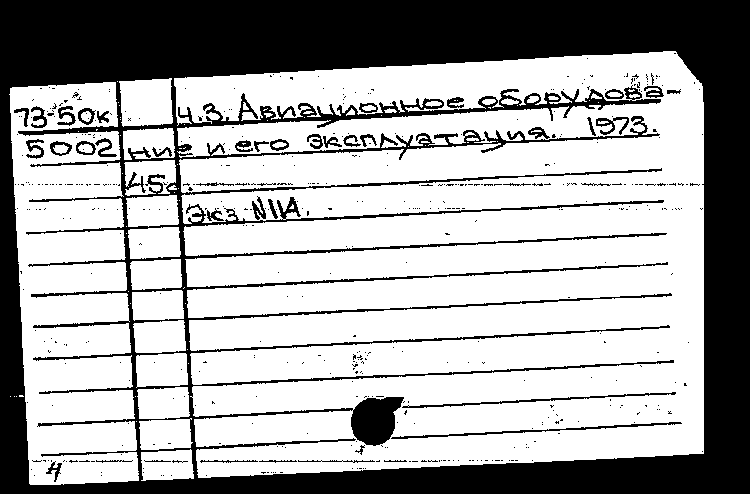 73-50к ч.3. Авиационное оборудова-
5002 ние и его эксплуатация. 1973.
45с.
Экз. N11A.
4